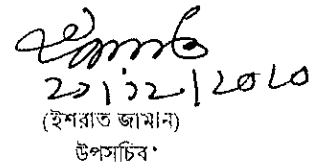 ২১/১২/২০২০
(ইশরাত জামান)
উপসচিব